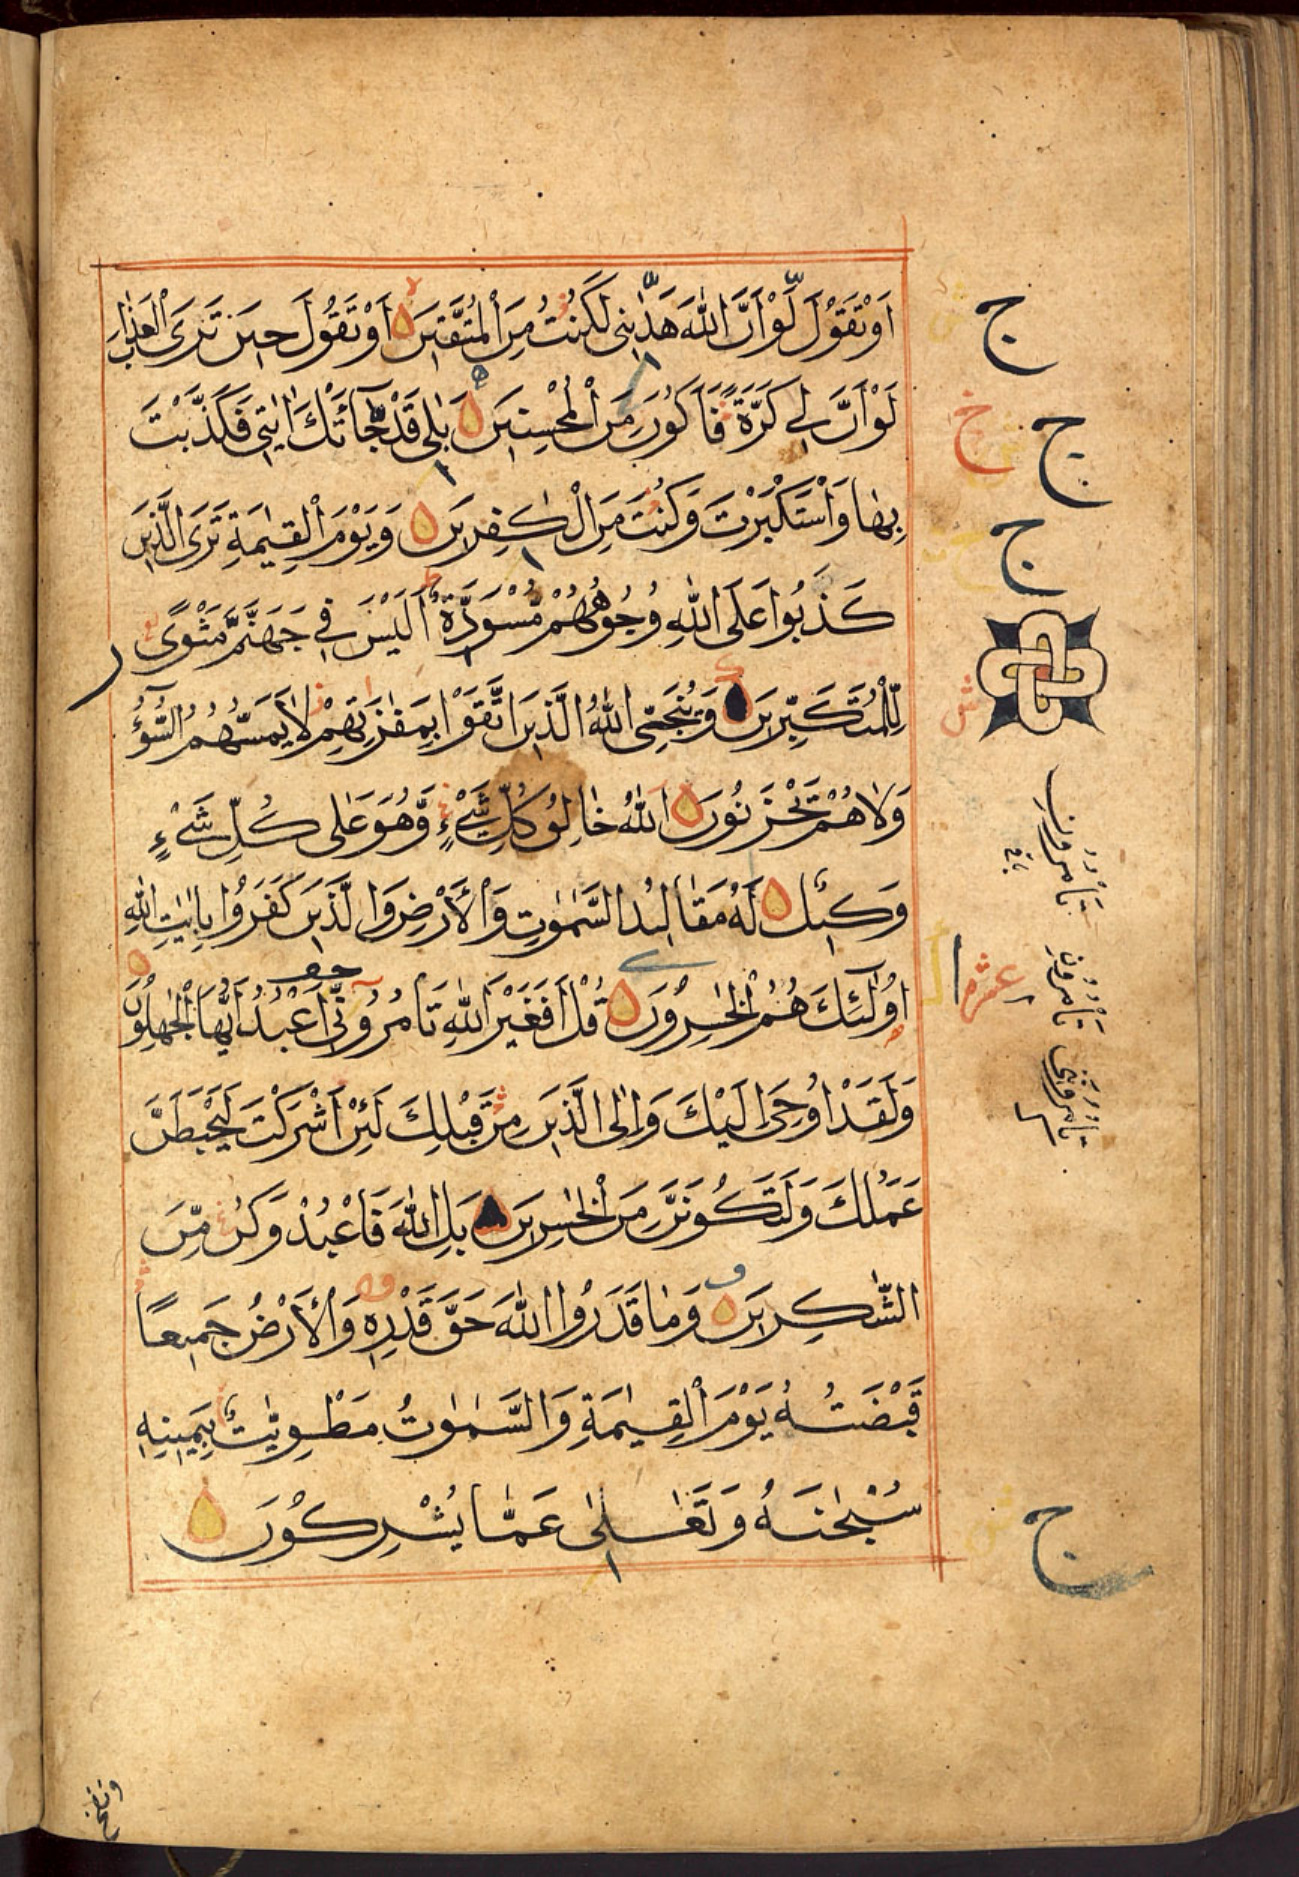 اَوْ تَقُوْلَ لَوْ اَنَّ اللّٰهَ هَدٰىنِى لَكُنْتُ مِنَ الْمُتَّقِيْنَ اَوْ تَقُوْلَ حِيْنَ تَرَى الْعَذَابَ
لَوْ اَنَّ لِى كَرَّةً فَاَكُوْنَ مِنَ الْمُحْسِنِيْنَ بَلٰى قَدْ جَآءَتْكَ اٰيٰتِى فَكَذَّبْتَ
بِهَا وَاسْتَكْبَرْتَ وَكُنْتَ مِنَ الْكٰفِرِيْنَ وَيَوْمَ الْقِيٰمَةِ تَرَى الَّذِيْنَ
كَذَبُوْا عَلَى اللّٰهِ وُجُوْهُهُمْ مُّسْوَدَّةٌ اَلَيْسَ فِى جَهَنَّمَ مَثْوًى
لِّلْمُتَكَبِّرِيْنَ وَيُنَجِّى اللّٰهُ الَّذِيْنَ اتَّقَوْا بِمَفَازَتِهِمْ لَا يَمَسُّهُمُ السُّوْٓءُ
وَلَا هُمْ يَحْزَنُوْنَ اَللّٰهُ خَالِقُ كُلِّ شَىْءٍ وَّهُوَ عَلٰى كُلِّ شَىْءٍ
وَكِيْلٌ لَهُ مَقَالِيْدُ السَّمٰوٰتِ وَالْاَرْضِ وَالَّذِيْنَ كَفَرُوْا بِاٰيٰتِ اللّٰهِ
اُولٰٓئِكَ هُمُ الْخٰسِرُوْنَ قُلْ اَفَغَيْرَ اللّٰهِ تَاْمُرُوْٓنِّى اَعْبُدُ اَيُّهَا الْجٰهِلُوْنَ
وَلَقَدْ اُوْحِىَ اِلَيْكَ وَاِلَى الَّذِيْنَ مِنْ قَبْلِكَ لَئِنْ اَشْرَكْتَ لَيَحْبَطَنَّ
عَمَلُكَ وَلَتَكُوْنَنَّ مِنَ الْخٰسِرِيْنَ بَلِ اللّٰهَ فَاعْبُدْ وَكُنْ مِّنَ
الشّٰكِرِيْنَ وَمَا قَدَرُوا اللّٰهَ حَقَّ قَدْرِهٖ وَالْاَرْضُ جَمِيْعًا
قَبْضَتُهُ يَوْمَ الْقِيٰمَةِ وَالسَّمٰوٰتُ مَطْوِيّٰتٌ بِيَمِيْنِهٖ
سُبْحٰنَهُ وَتَعٰلٰى عَمَّا يُشْرِكُوْنَ
ج
ج
ج
عشر
ج
ونفخ